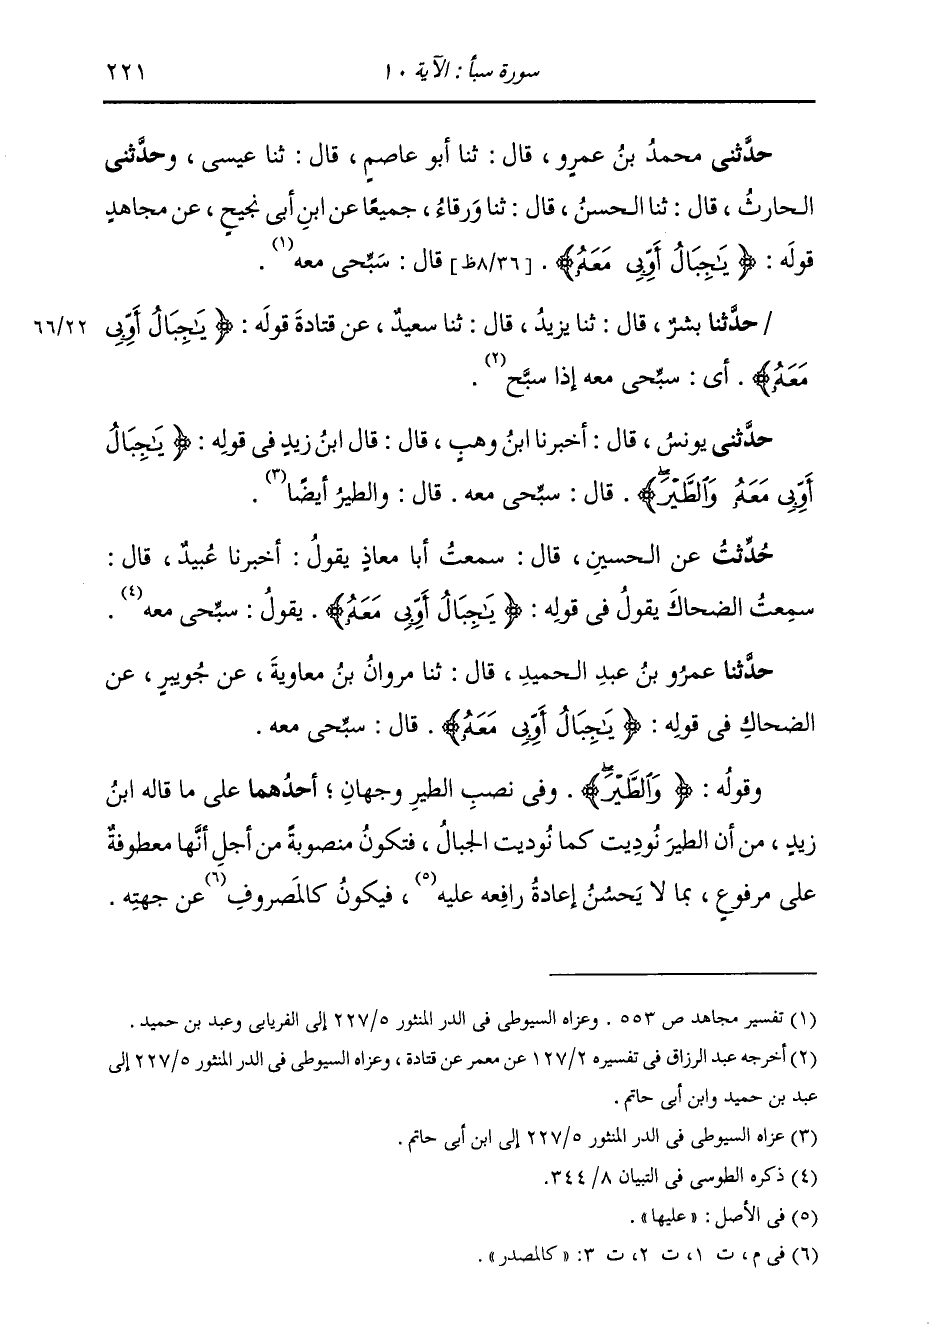 سورة سبأ : الآية ١٠
٢٢١
حدَّثنى محمدُ بنُ عمرٍو ، قال : ثنا أبو عاصمٍ ، قال : ثنا عيسى ، وحدَّثنى
الحارثُ ، قال : ثنا الحسنُ ، قال : ثنا وَرقاءُ ، جميعًا عن ابنِ أبى نجيحٍ ، عن مجاهدٍ
قولَه : ﴿ يَٰجِبَالُ أَوِّبِى مَعَهُۥ ﴾ . [٨/٣٦ظ] قال : سَبِّحى معه(١) .
/ حدَّثنا بشرٌ ، قال : ثنا يزيدُ ، قال : ثنا سعيدٌ ، عن قتادةَ قولَه : ﴿ يَٰجِبَالُ أَوِّبِى
٦٦/٢٢
مَعَهُۥ ﴾ . أى : سبِّحى معه إذا سبَّح(٢) .
حدَّثنى يونسُ ، قال : أخبرنا ابنُ وهبٍ ، قال : قال ابنُ زيدٍ فى قولِه : ﴿ يَٰجِبَالُ
أَوِّبِى مَعَهُۥ وَٱلطَّيْرَۖ ﴾ . قال : سبِّحى معه . قال : والطيرُ أيضًا(٣) .
حُدِّثتُ عن الحسينِ ، قال : سمعتُ أبا معاذٍ يقولُ : أخبرنا عُبيدٌ ، قال :
سمِعتُ الضحاكَ يقولُ فى قولِه : ﴿ يَٰجِبَالُ أَوِّبِى مَعَهُۥ ﴾ . يقولُ : سبِّحى معه(٤) .
حدَّثنا عمرُو بنُ عبدِ الحميدِ ، قال : ثنا مروانُ بنُ معاويةَ ، عن جُويبرٍ ، عن
الضحاكِ فى قولِه : ﴿ يَٰجِبَالُ أَوِّبِى مَعَهُۥ ﴾ . قال : سبِّحى معه .
وقولُه : ﴿ وَٱلطَّيْرَۖ ﴾ . وفى نصبِ الطيرِ وجهانِ ؛ أحدُهما على ما قاله ابنُ
زيدٍ ، من أن الطيرَ نُودِيت كما نُوديت الجبالُ ، فتكونُ منصوبةً من أجلِ أنَّها معطوفةٌ
على مرفوعٍ ، بما لا يَحسُنُ إعادةُ رافِعه عليه(٥) ، فيكونُ كالمَصروفِ(٦) عن جهتِه .
(١) تفسير مجاهد ص ٥٥٣ . وعزاه السيوطى فى الدر المنثور ٢٢٧/٥ إلى الفريابى وعبد بن حميد .
(٢) أخرجه عبد الرزاق فى تفسيره ١٢٧/٢ عن معمر عن قتادة ، وعزاه السيوطى فى الدر المنثور ٢٢٧/٥ إلى
عبد بن حميد وابن أبى حاتم .
(٣) عزاه السيوطى فى الدر المنثور ٢٢٧/٥ إلى ابن أبى حاتم .
(٤) ذكره الطوسى فى التبيان ٨/ ٣٤٤.
(٥) فى الأصل : « عليها » .
(٦) فى م ، ت ١، ت ٢، ت ٣: « كالمصدر » .